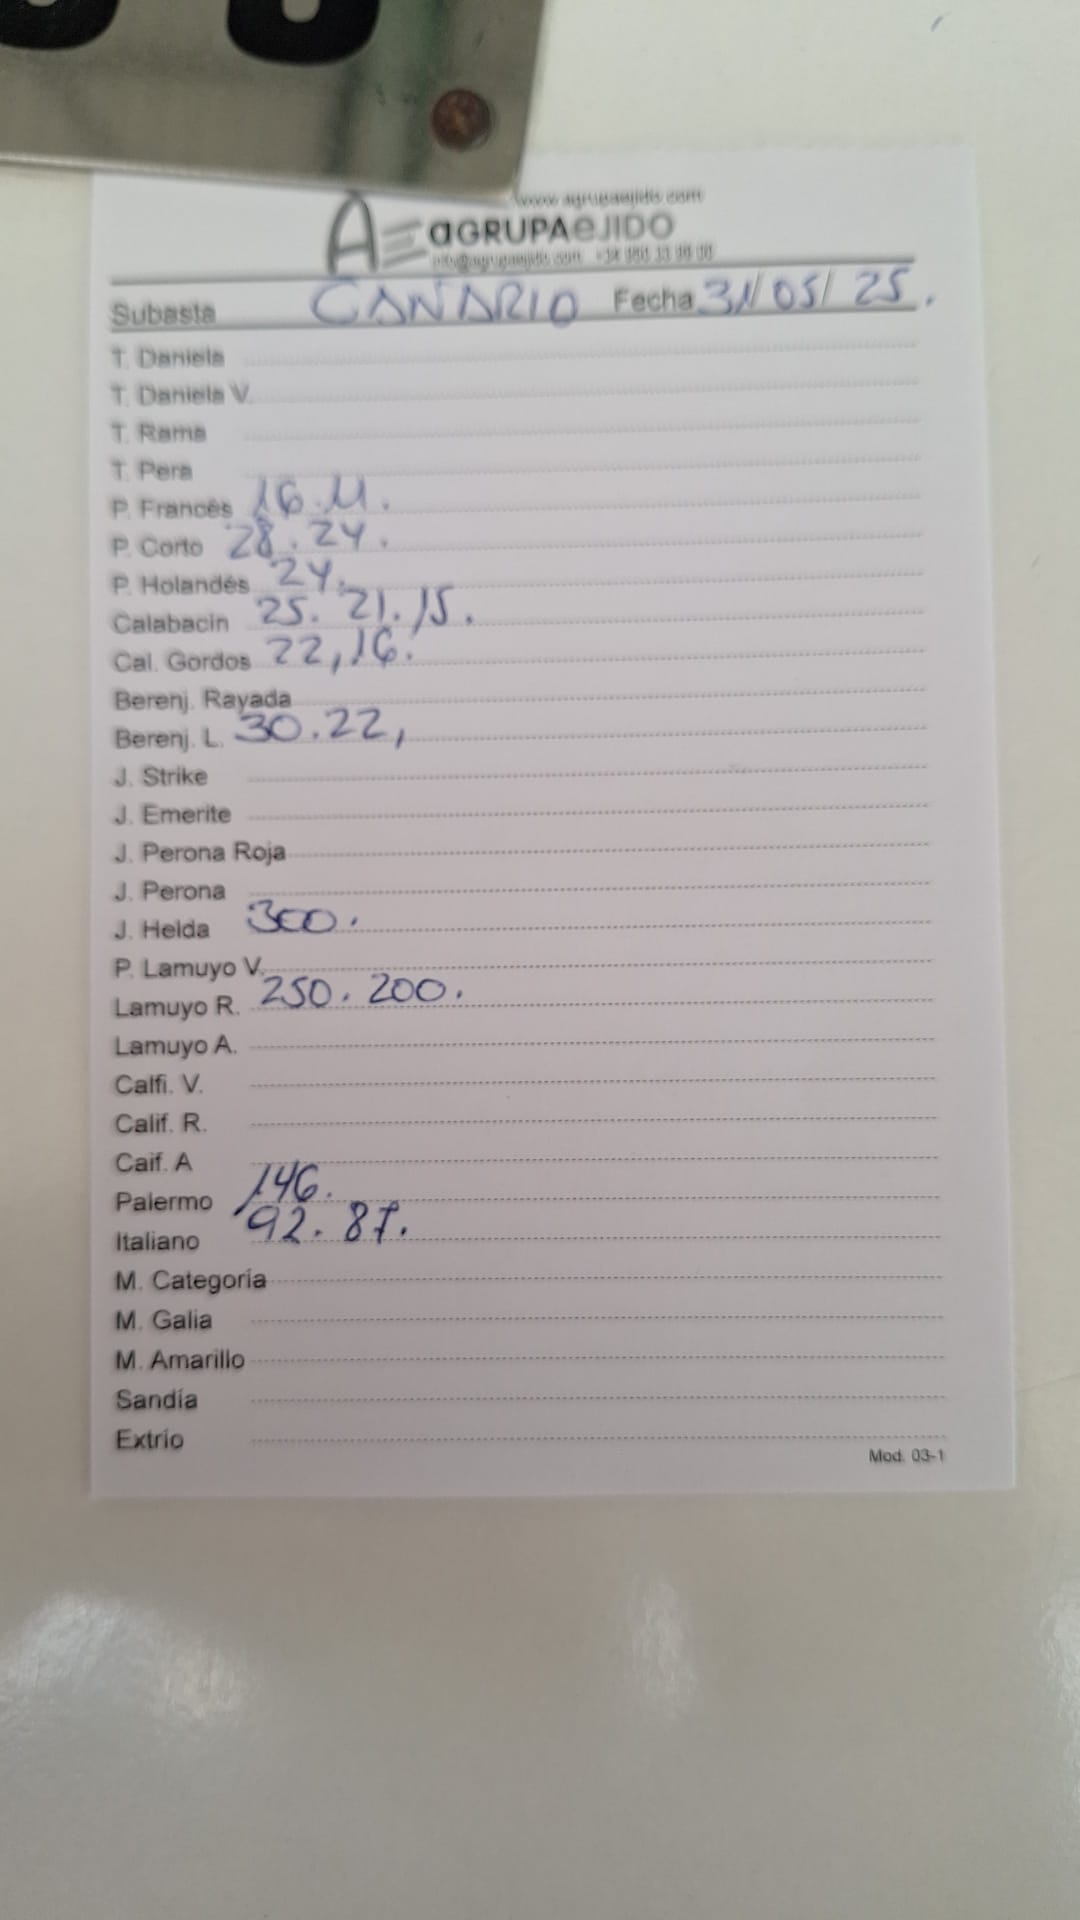 www.agrupaejido.com
AE aGRUPAeJIDO
info@agrupaejido.com
Subasta CANARIO Fecha 31/05/25.
T. Daniela
T. Daniela V.
T. Rama
T. Pera
P. Francés 16.11.
P. Corto 28.24.
P. Holandés 24.
Calabacin 25. 21. 15.
Cal. Gordos 22,16.
Berenj. Rayada
Berenj. L. 30.22,
J. Strike
J. Emerite
J. Perona Roja
J. Perona
J. Helda 300.
P. Lamuyo V.
Lamuyo R. 250. 200.
Lamuyo A.
Calfi. V.
Calif. R.
Caif. A
Palermo 146.
Italiano 92. 87.
M. Categoría
M. Galia
M. Amarillo
Sandía
Extrio
Mod. 03-1